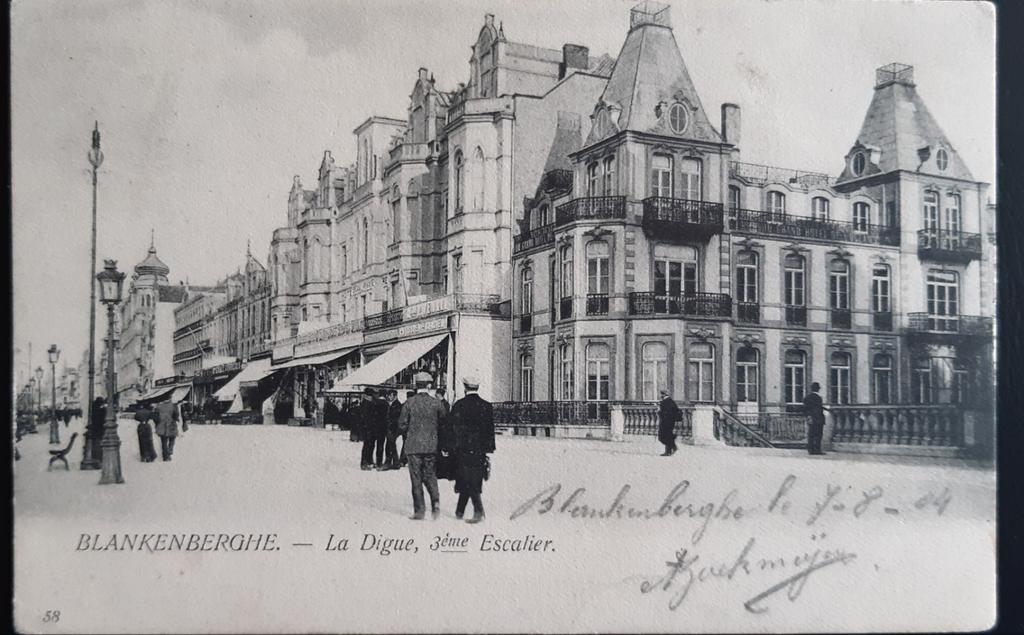 GRAND HOTEL
BLANKENBERGHE. — La Digue, 3ème Escalier.
Blankenberghe le 7-8-04
58